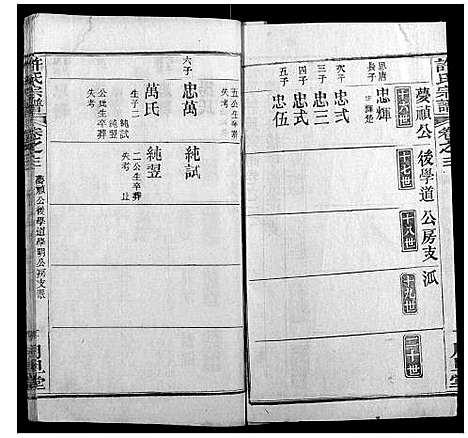 許氏宗譜
卷之三
夢禎公後學道公房支派
十六世
十七世
十八世
十九世
二十世
思唐
長子
忠輝
次子
忠弍
三子
忠三
四子
忠弎
五子
忠伍
五公生卒葬
失考
六子
忠萬
純試
萬氏
生子二
純試
純翌
公氏生卒葬
失考
純翌
二公生卒葬
失考
許氏宗譜
卷之三
夢禎公後學道學明公房支派